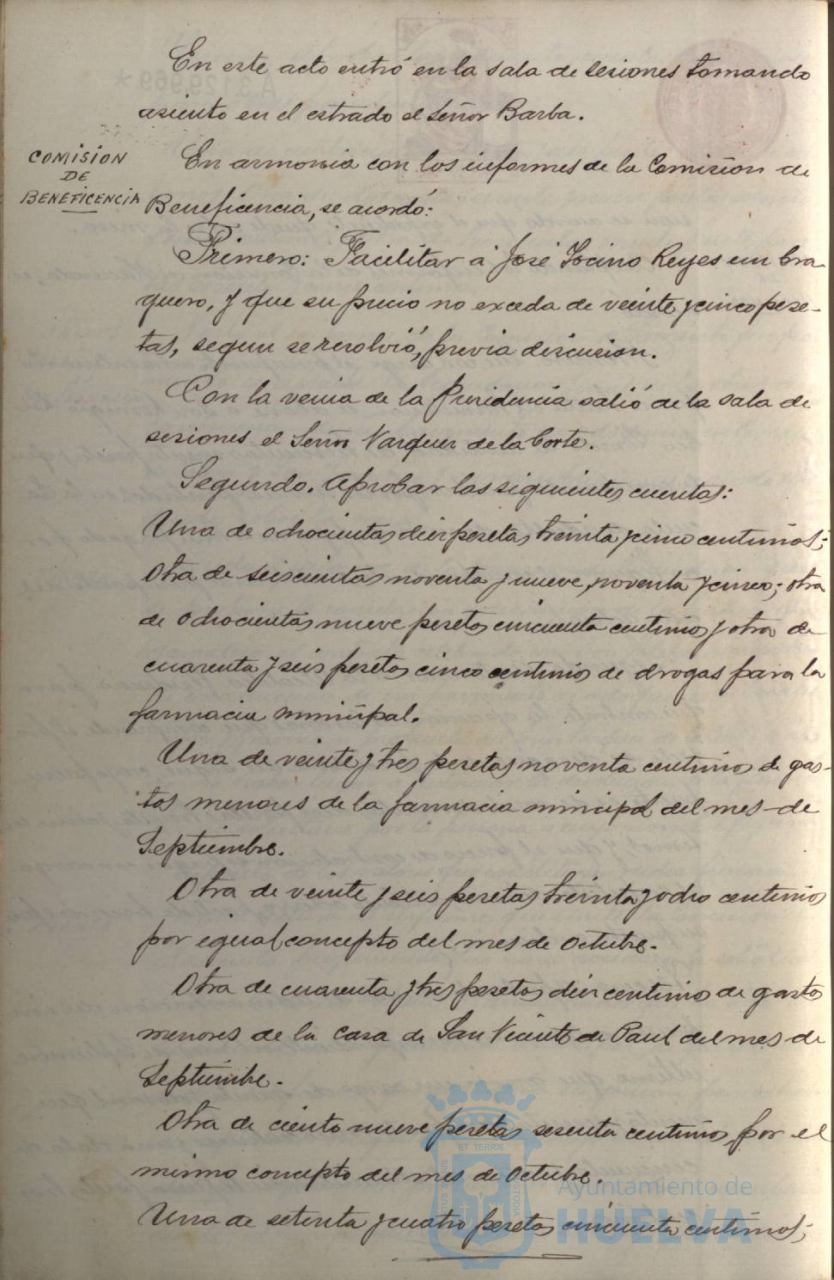 En este acto entró en la sala de sesiones tomando
asiento en el estrado el Señor Barba.
COMISION
DE
BENEFICENCIA
En armonia con los informes de la Comision de
Beneficencia, se acordó:
Primero: Facilitar á José Tocino Reyes un bra-
guero, y que su precio no exceda de veinte y cinco pese-
tas, segun se resolvió, previa discusion.
Con la venia de la Presidencia salió de la sala de
sesiones el Señor Vazquez de la Corte.
Segundo. Aprobar las siguientes cuentas:
Una de ochocientas diez pesetas treinta y cinco centimos;
otra de seiscientas noventa y nueve, noventa y cinco; otra
de ochocientas nueve pesetas cincuenta centimos y otra de
cuarenta y seis pesetas cinco centimos de drogas para la
farmacia municipal.
Una de veinte y tres pesetas noventa centimos de gas-
tos menores de la farmacia municipal del mes de
Septiembre.
Otra de veinte y seis pesetas treinta y ocho centimos
por igual concepto del mes de Octubre.
Otra de cuarenta y tres pesetas diez centimos de gastos
menores de la casa de San Vicente de Paul del mes de
Septiembre.
Otra de ciento nueve pesetas sesenta centimos por el
mismo concepto del mes de Octubre.
Una de setenta y cuatro pesetas cincuenta centimos;
Ayuntamiento de
HUELVA